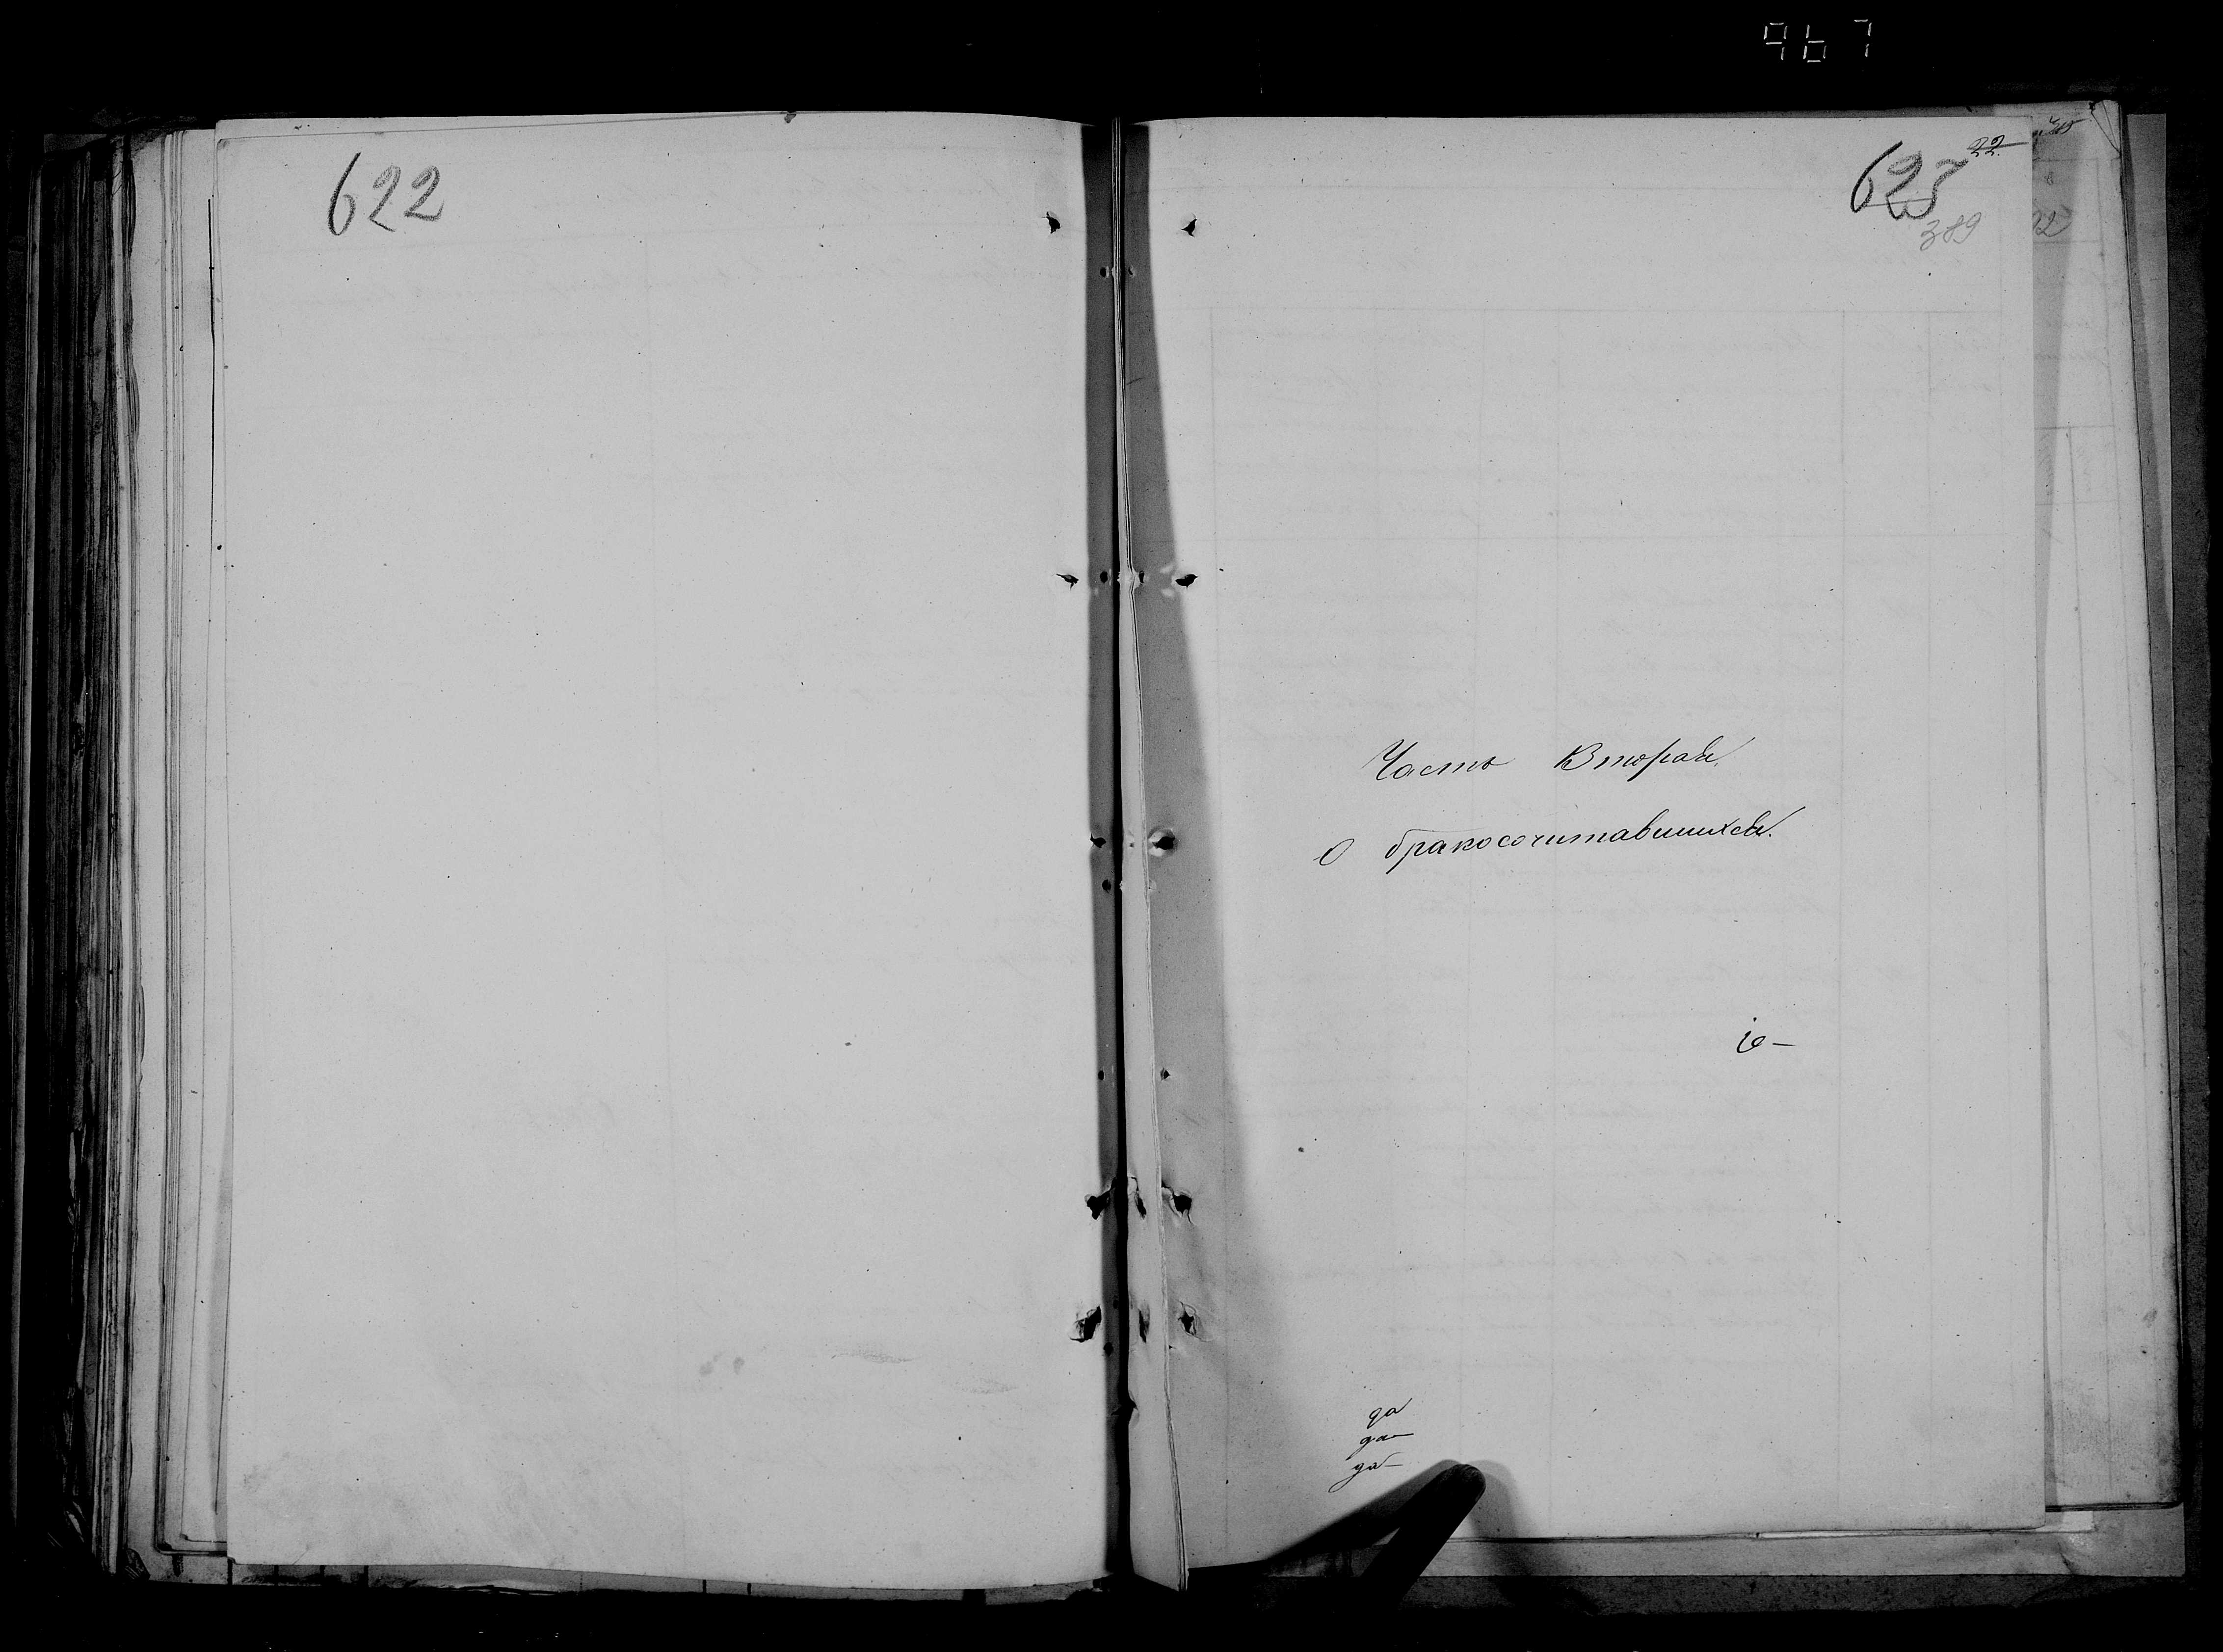 967
622
22.
623
389
Часть Вторая.
О бракосочитавшихся.
іе-
да
да-
да-